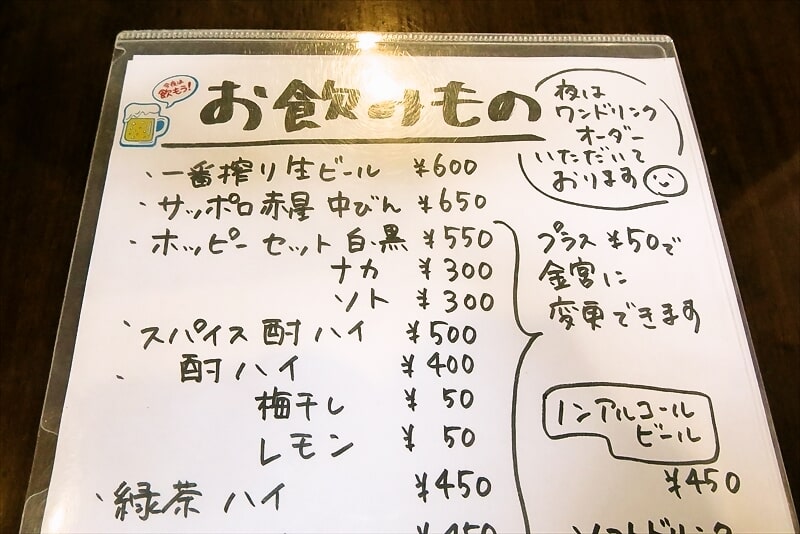 今夜は
飲もう!
お飲みもの
夜は
ワンドリンク
オーダー
いただいて
おります
・一番搾り生ビール ¥600
・サッポロ赤星 中びん ¥650
・ホッピーセット 白・黒 ¥550
ナカ ¥300
ソト ¥300
・スパイス酎ハイ ¥500
・酎ハイ ¥400
梅干し ¥50
レモン ¥50
・緑茶ハイ ¥450
¥450
プラス¥50で
金宮に
変更できます
ノンアルコール
ビール
¥450
ソフトドリンク